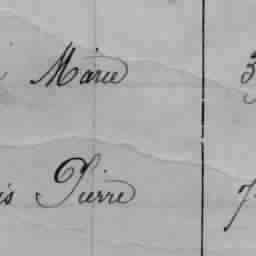 Marie 3
is Pierre 7